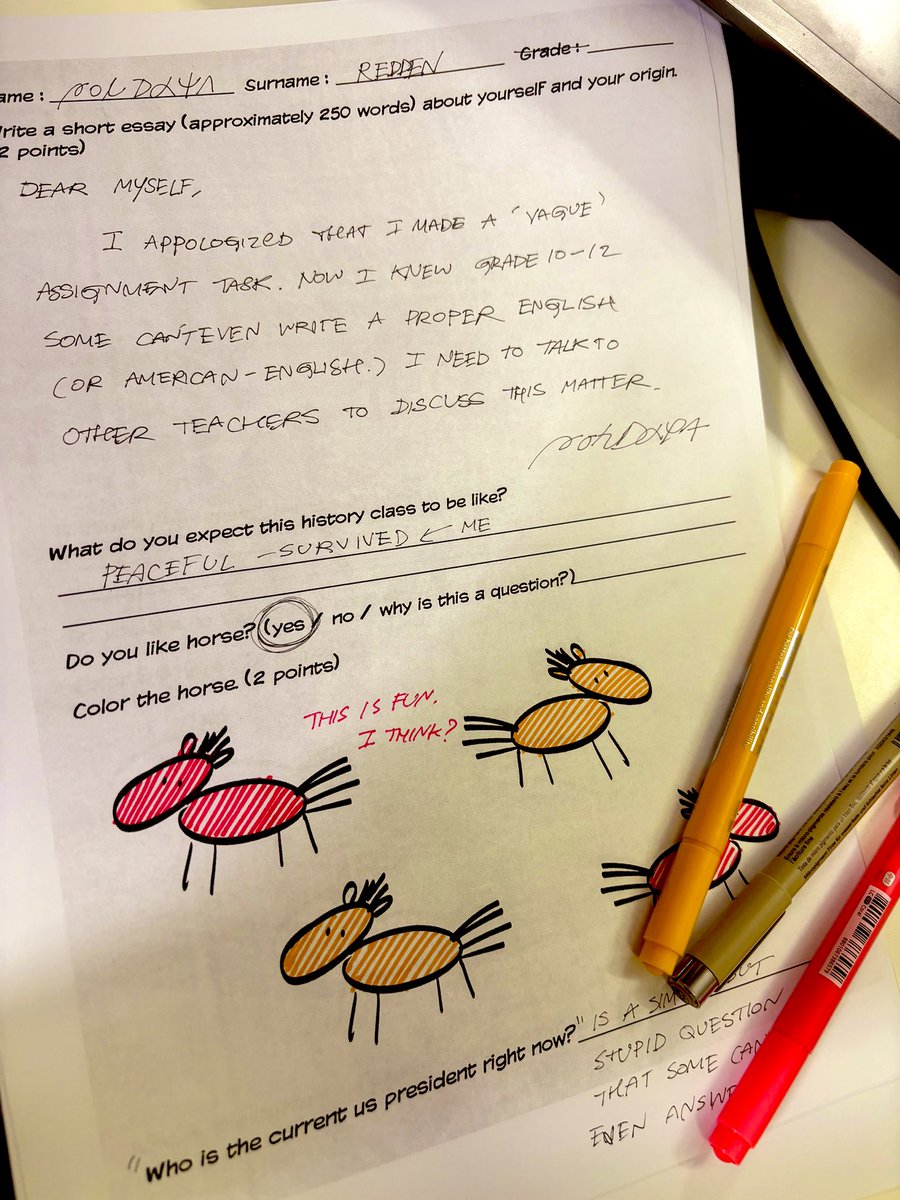 ame : Surname : REDDEN Grade :
Write a short essay (approximately 250 words) about yourself and your origin.
2 points)
DEAR MYSELF,
I APPOLOGIZED THAT I MADE A 'VAGUE'
ASSIGNMENT TASK. NOW I KNEW GRADE 10-12
SOME CAN'T EVEN WRITE A PROPER ENGLISH
(OR AMERICAN-ENGLISH.) I NEED TO TALK TO
OTHER TEACHERS TO DISCUSS THIS MATTER.
What do you expect this history class to be like?
PEACEFUL - SURVIVED ← ME
Do you like horse? (yes / no / why is this a question?)
Color the horse. (2 points)
THIS IS FUN.
I THINK?
"Who is the current us president right now?" IS A BUT
STUPID QUESTION
THAT SOME
EVEN